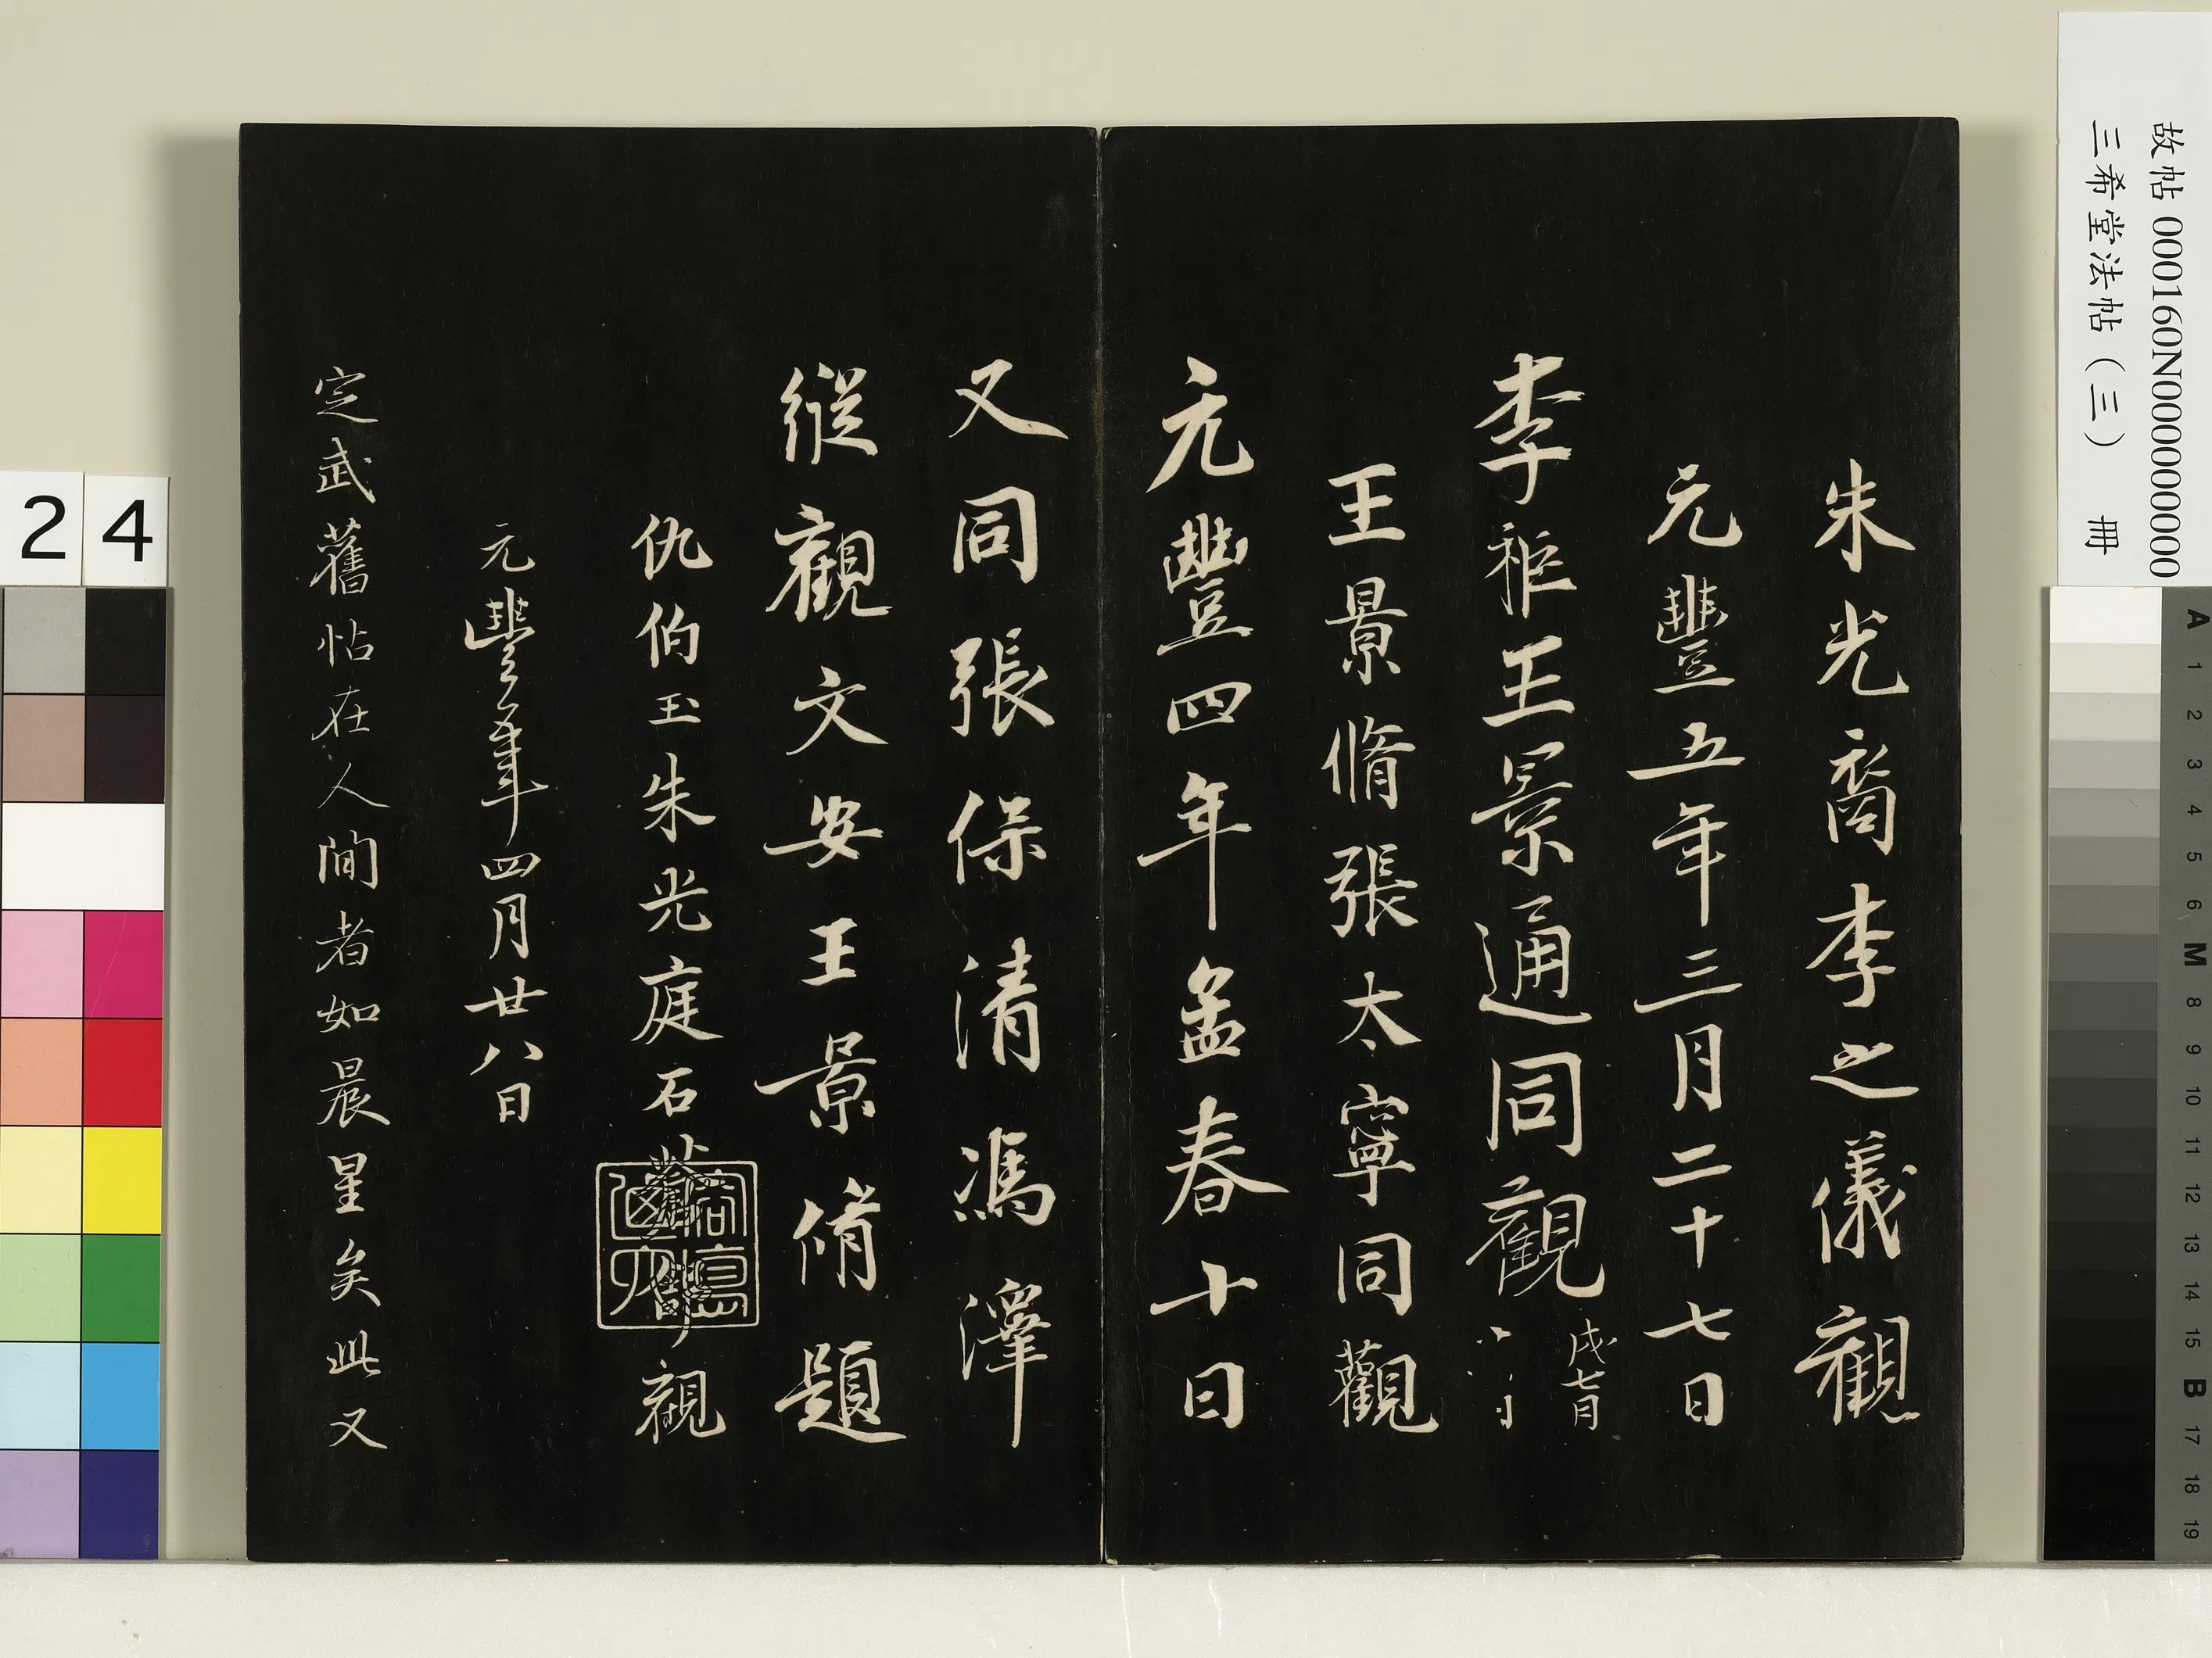 朱光裔李之儀觀
元豐五年三月二十七日
李秬王景通同觀
戌七月
王景脩張太寧同觀
元豐四年孟春十日
又同張保清馮澤
縱觀文安王景脩題
仇伯玉朱光庭石蒼舒觀
元豐五年四月廿八日
定武舊帖在人間者如晨星矣此又
故帖 000160N000000000
三希堂法帖(三) 冊
24
A 1 2 3 4 5 6 M 8 9 10 11 12 13 14 15 B 17 18 19